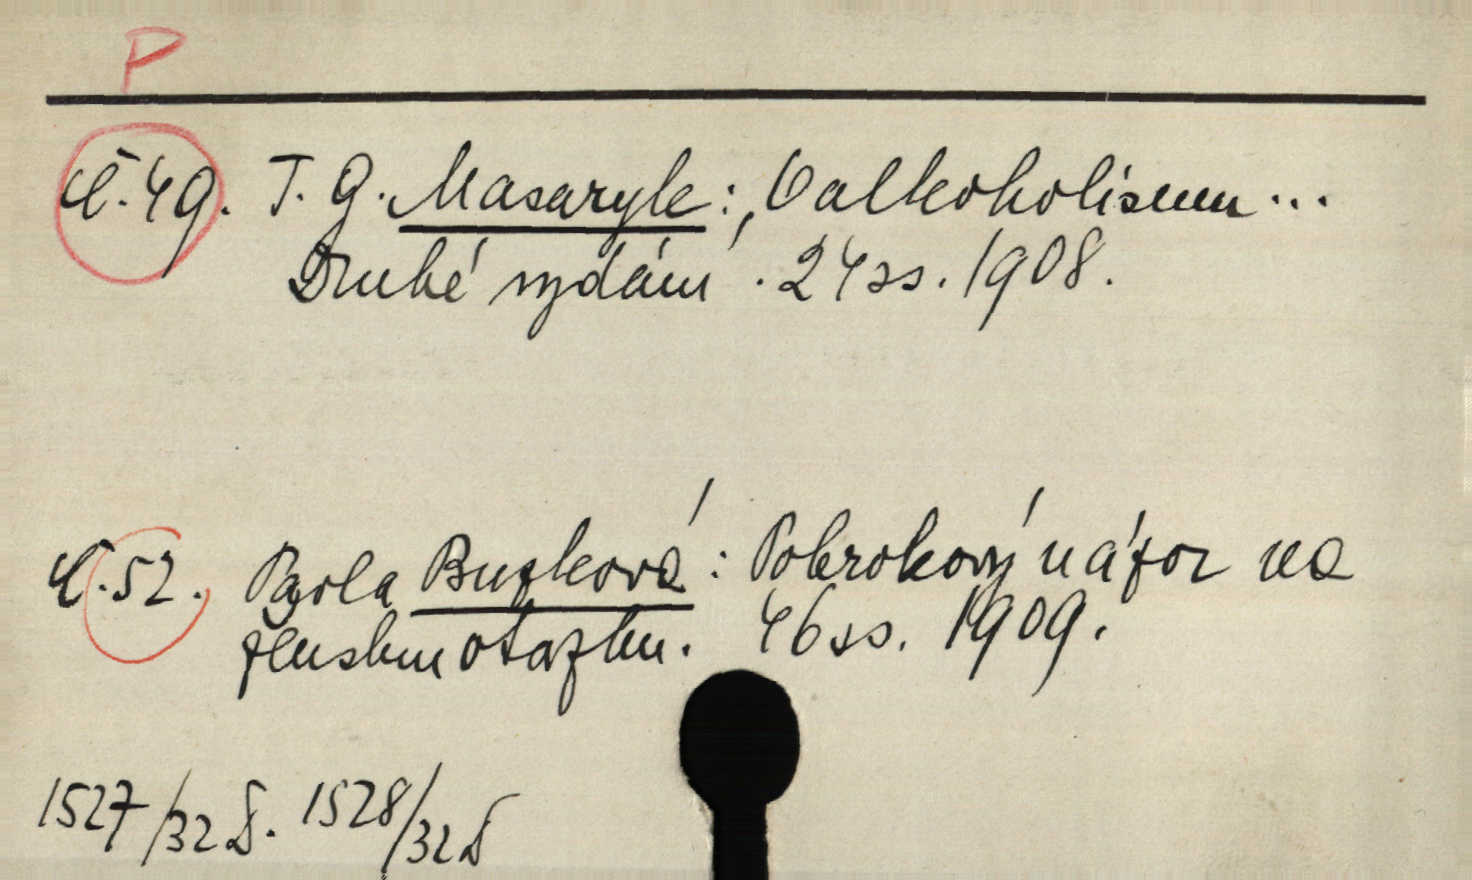 P
č. 49. T. G. Masaryk: O alkoholismu...
Druhé vydání. 24 ss. 1908.
č. 52. Pavla Buzková: Pokrokový názor na
ženskou otázku. 46 ss. 1909.
1527/32 D. 1528/32 D